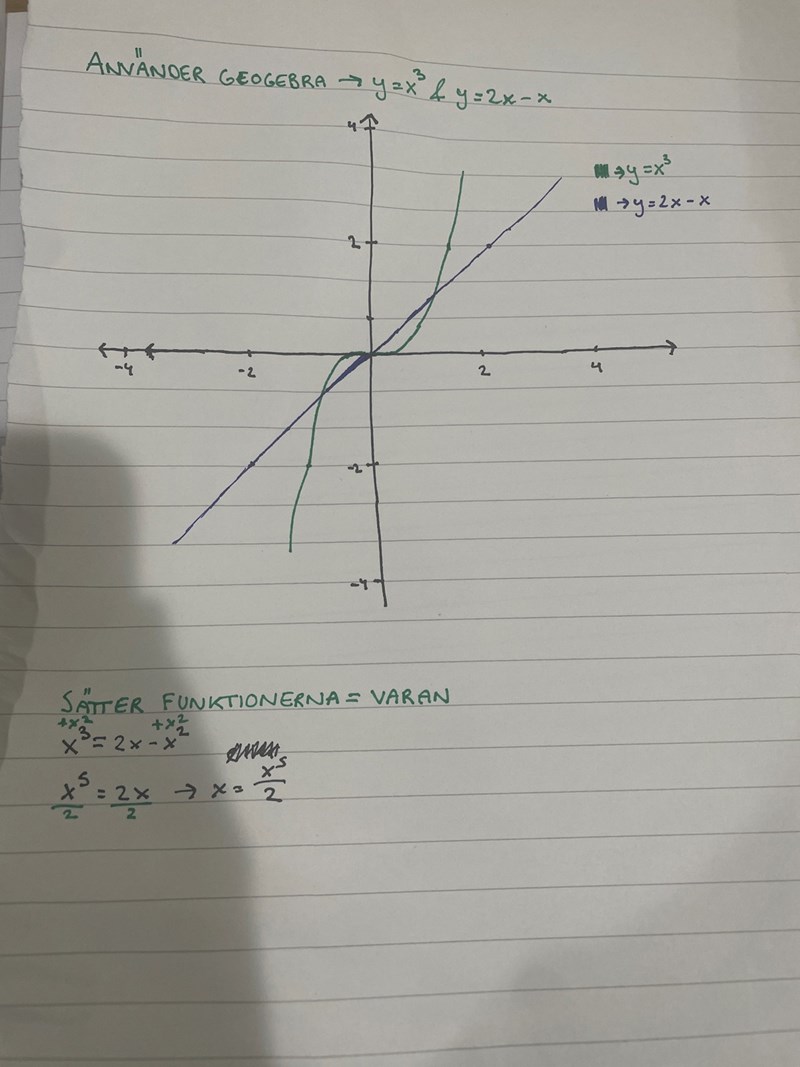 ANVÄNDER GEOGEBRA → y=x³ & y=2x-x
4
→ y=x³
→ y=2x-x
2
-4 -2 2 4
-2
-4
SÄTTER FUNKTIONERNA = VARAN
+x² +x²
x³ = 2x - x²
x⁵/2 = 2x/2 → x = x⁵/2